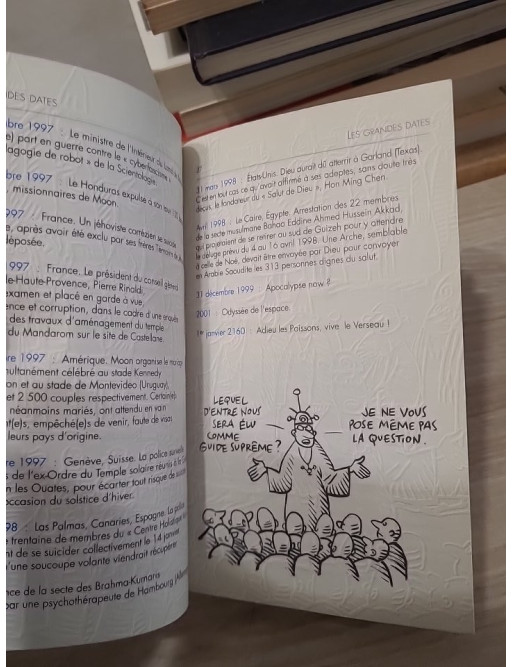 DES DATES
bre 1997 : Le ministre de l'Intérieur
e) part en guerre contre le « cyberfascisme »
agogie de robot » de la Scientologie.
bre 1997 : Le Honduras expulse
missionnaires de Moon.
997 : France. Un jéhoviste corrézien se suicide
e, après avoir été exclu par ses frères Témoins
déposée.
1997 : France. Le président du conseil général
de-Haute-Provence, Pierre Rinaldi,
examen et placé en garde à vue,
ence et corruption, dans le cadre d'une enquête
des travaux d'aménagement du temple
du Mandarom sur le site de Castellane.
re 1997 : Amérique. Moon organise le mariage
multanément célébré au stade Kennedy
on et au stade de Montevideo (Uruguay),
et 2 500 couples respectivement. Certain(e)s
néanmoins mariés, ont attendu en vain
nt(e)s, empêché(e)s de venir, faute de visas
leurs pays d'origine.
re 1997 : Genève, Suisse. La police surveille
s de l'ex-Ordre du Temple solaire réunis
n les Ouates, pour écarter tout risque de
occasion du solstice d'hiver.
98 : Las Palmas, Canaries, Espagne. La police
trentaine de membres du « Centre
nt de se suicider collectivement le 14 janvier
'une soucoupe volante viendrait récupérer.
nce de la secte des Brahma-Kumaris
par une psychothérapeute de Hambourg
LES GRANDES DATES
31 mars 1998 : États-Unis. Dieu aurait dû atterrir à Garland (Texas).
C'est en tout cas ce qu'avait affirmé à ses adeptes, sans doute très
déçus, le fondateur du « Salut de Dieu », Hon Ming Chen.
Avril 1998 : Le Caire, Égypte. Arrestation des 22 membres
de la secte musulmane Bahao Eddine Ahmed Hussein Akkad,
qui projetaient de se rendre au sud de Guizeh pour y attendre
le déluge prévu du 4 au 16 avril 1998. Une Arche, semblable
à celle de Noé, devait être envoyée par Dieu pour convoyer
en Arabie Saoudite les 313 personnes dignes du salut.
31 décembre 1999 : Apocalypse now ?
2001 : Odyssée de l'espace.
1er janvier 2160 : Adieu les Poissons, vive le Verseau !
LEQUEL
D'ENTRE NOUS
SERA ÉLU
COMME
GUIDE SUPRÊME ?
JE NE VOUS
POSE MÊME PAS
LA QUESTION.